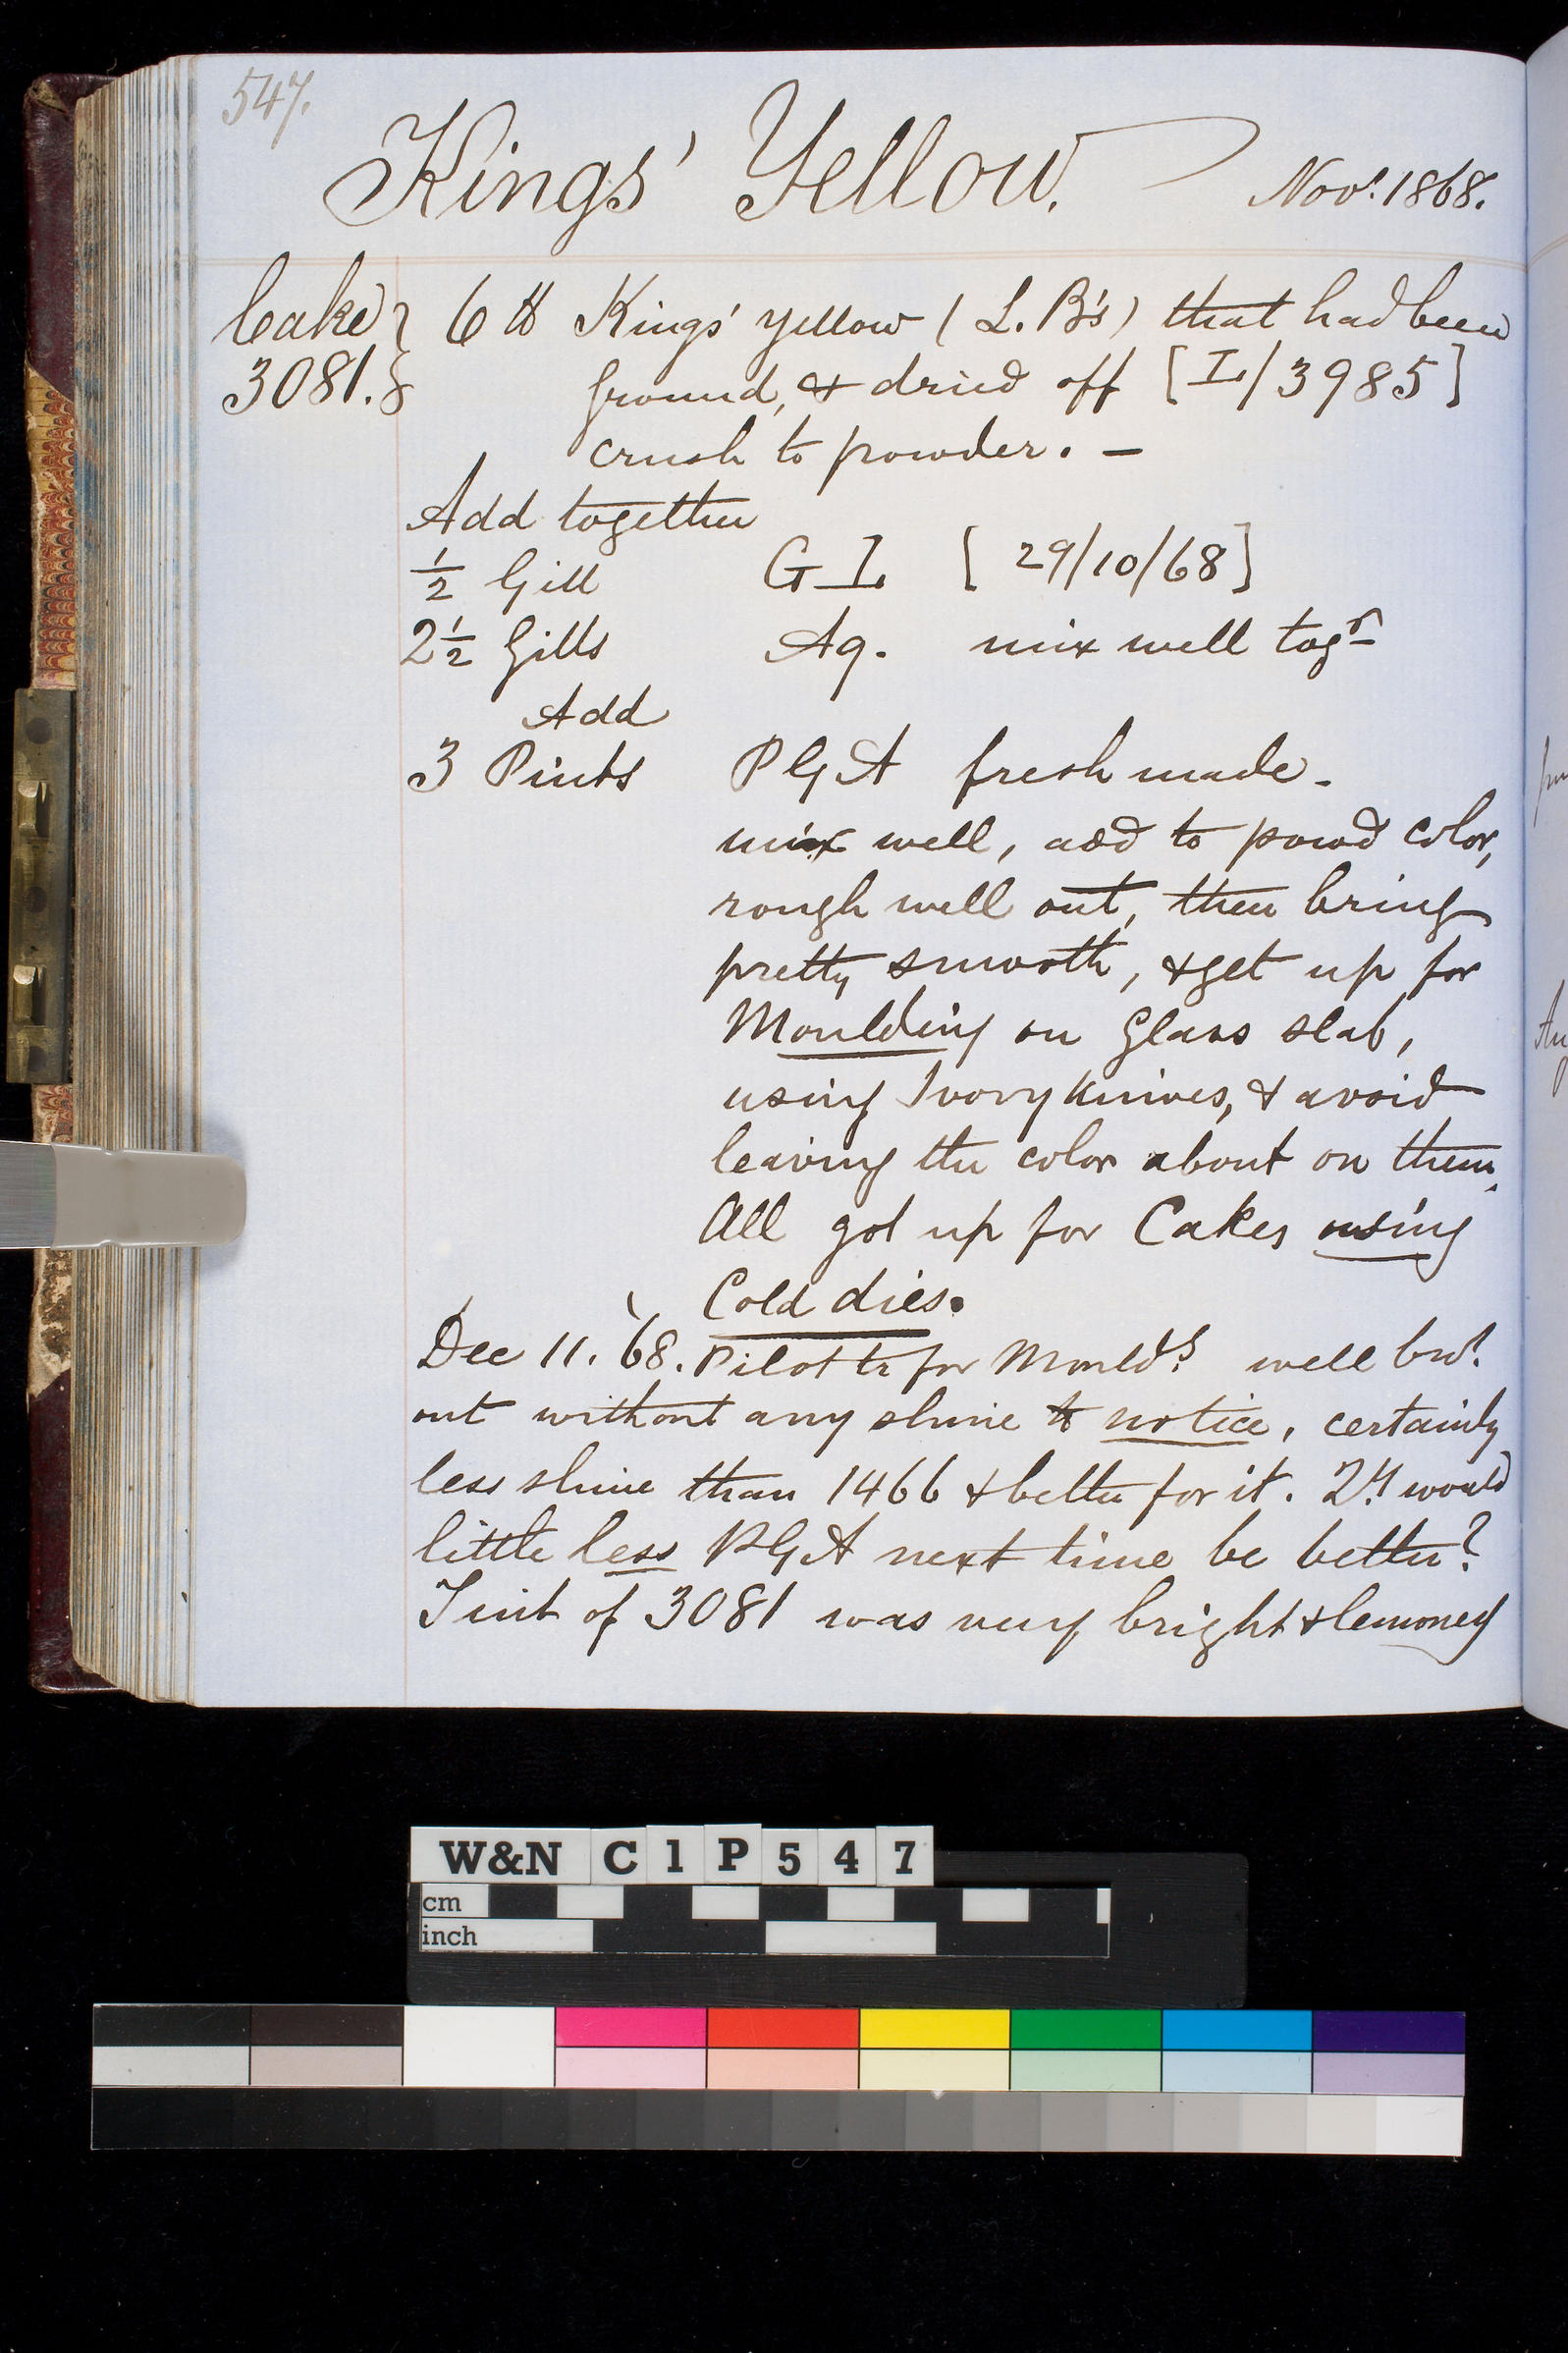 547.
Kings' Yellow. Novr. 1868.
Cake 6 lb Kings' Yellow (L. B's) that had been
3081. ground, & dried off [I/3985]
crush to powder. –
Add together
½ Gill G I. [29/10/68]
2½ Gills Aq. mix well togr
Add
3 Pints P G A fresh made –
mix well, add to powd color,
rough well out, then bring
pretty smooth, & get up for
Moulding on Glass slab,
using Ivory knives, & avoid
leaving the color about on them.
All got up for Cakes using
Cold dies.
Dec 11. '68. Pilot for Mould
out without any shine to notice, certainly
less shine than 1466 & better for it. would
little less PGA next time be better?
Tint of 3081 was very bright & lemoney
W&N C 1 P 5 4 7
cm
inch